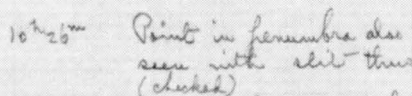 10ʰ 26ᵐ Point in penumbra also
seen with slit thus
(checked)